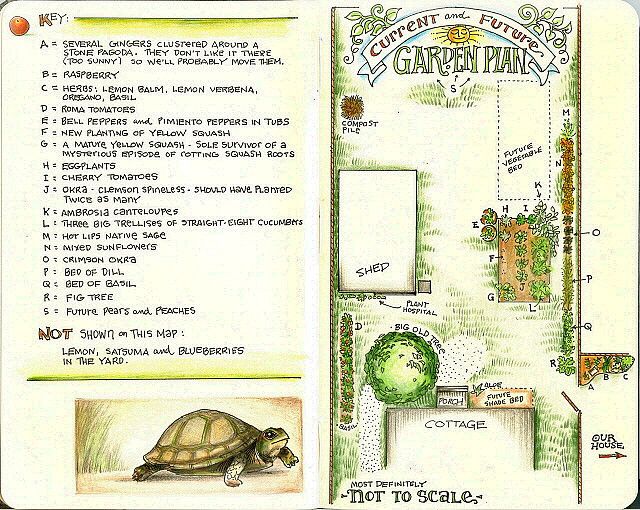 KEY:
A = SEVERAL GINGERS CLUSTERED AROUND A
STONE PAGODA. THEY DON'T LIKE IT THERE
(TOO SUNNY) SO WE'LL PROBABLY MOVE THEM.
B = RASPBERRY
C = HERBS: LEMON BALM, LEMON VERBENA,
OREGANO, BASIL
D = ROMA TOMATOES
E = BELL PEPPERS and PIMIENTO PEPPERS IN TUBS
F = NEW PLANTING OF YELLOW SQUASH
G = A MATURE YELLOW SQUASH - SOLE SURVIVOR OF A
MYSTERIOUS EPISODE OF ROTTING SQUASH ROOTS
H = EGGPLANTS
I = CHERRY TOMATOES
J = OKRA - CLEMSON SPINELESS - SHOULD HAVE PLANTED
TWICE AS MANY
K = AMBROSIA CANTELOUPES
L = THREE BIG TRELLISES OF STRAIGHT-EIGHT CUCUMBERS
M = HOT LIPS NATIVE SAGE
N = MIXED SUNFLOWERS
O = CRIMSON OKRA
P = BED OF DILL
Q = BED OF BASIL
R = FIG TREE
S = FUTURE PEARS and PEACHES
NOT SHOWN on THIS MAP:
LEMON, SATSUMA and BLUEBERRIES
IN THE YARD.
CURRENT and FUTURE
GARDEN PLAN
S
COMPOST
PILE
FUTURE
VEGETABLE
BED
M
N
K
H I
E
O
F
SHED
P
J
G
L
PLANT
HOSPITAL
D
BIG OLD TREE
Q
R
A B C
ALOE
PORCH
FUTURE
SHADE BED
BASIL
COTTAGE
OUR
HOUSE
MOST DEFINITELY
NOT TO SCALE